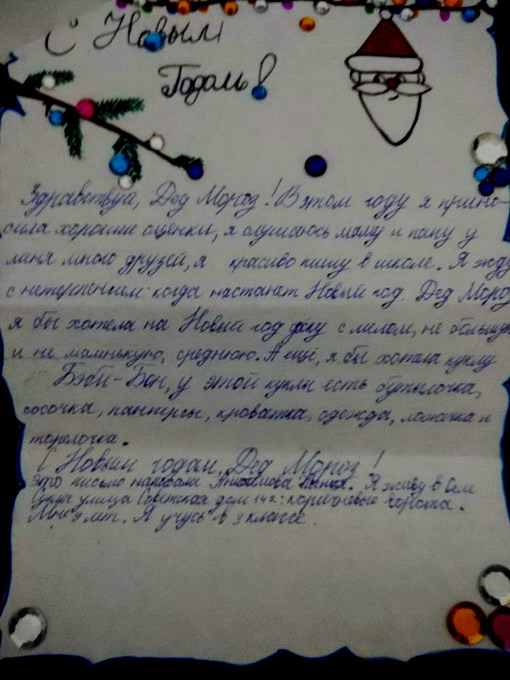 С Новым
Годом!
Здравствуй, Дед Мороз! В этом году я прино-
сила хорошие оценки, я слушаюсь маму и папу у
меня много друзей, я красиво пишу в школе. Я жду
с нетерпением когда настанет Новый год. Дед Мороз
я бы хотела на Новый год доску с мелом, не большую
и не маленькую, среднюю. А ещё, я бы хотела куклу
Бэби-Бон, у этой куклы есть бутылочка,
сосочка, памперсы, кроватка, одежда, ложечка и
торелочка.
С Новым годом, Дед Мороз!
Это письмо написала Я живу в
улица Советская дом коричневые ворота.
Мне 9 лет. Я учусь в 3 классе.